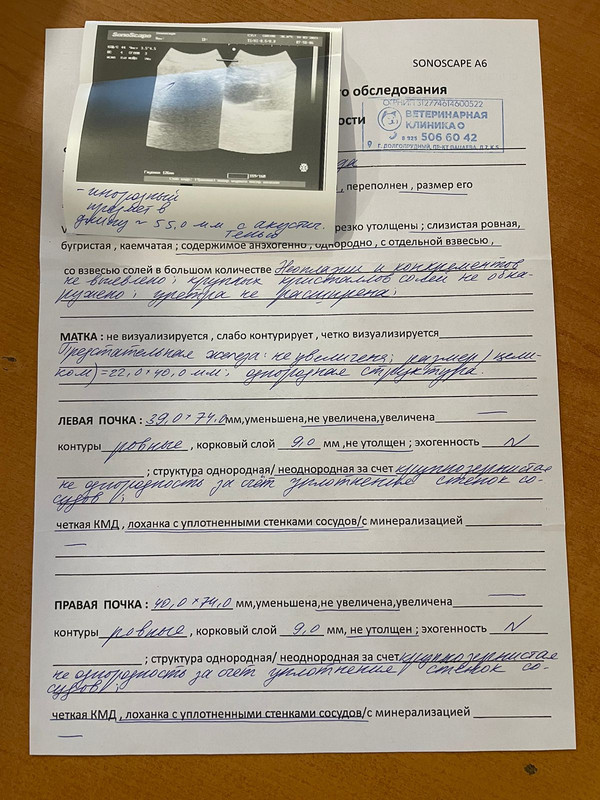 SonoScape
SONOSCAPE A6
го обследования
ости
ОГРНИП 312774614600522
ВЕТЕРИНАРНАЯ
КЛИНИКА
8 925 506 60 42
г. ДОЛГОПРУДНЫЙ, ПР-КТ ПАЦАЕВА, Д.7, К.5
, переполнен , размер его
- инородный
предмет в
длину ~ 55,0 мм с акустич.
тенью
резко утолщены ; слизистая ровная,
бугристая , каемчатая ; содержимое анэхогенно , однородно , с отдельной взвесью ,
со взвесью солей в большом количестве Неоплазии и конкрементов
не выявлено ; крупных кристаллов солей не обна-
ружено ; уретра не расширена ;
МАТКА : не визуализируется , слабо контурирует , четко визуализируется
Предстательная железа : не увеличена ; размер (цели-
ком) = 22,0 × 40,0 мм ; однородная структура.
ЛЕВАЯ ПОЧКА : 39,0 × 74,0 мм,уменьшена,не увеличена,увеличена —
контуры ровные , корковый слой 9,0 мм ,не утолщен ; эхогенность N
; структура однородная/ неоднородная за счет крупнозернистая
не однородность за счёт уплотнения стенок со-
судов ;
четкая КМД , лоханка с уплотненными стенками сосудов/с минерализацией
—
ПРАВАЯ ПОЧКА : 40,0 × 74,0 мм,уменьшена,не увеличена,увеличена —
контуры ровные , корковый слой 9,0 мм, не утолщен ; эхогенность N
; структура однородная/ неоднородная за счет крупнозернистая
не однородность за счёт уплотнения стенок со-
судов ;
четкая КМД , лоханка с уплотненными стенками сосудов/с минерализацией
—